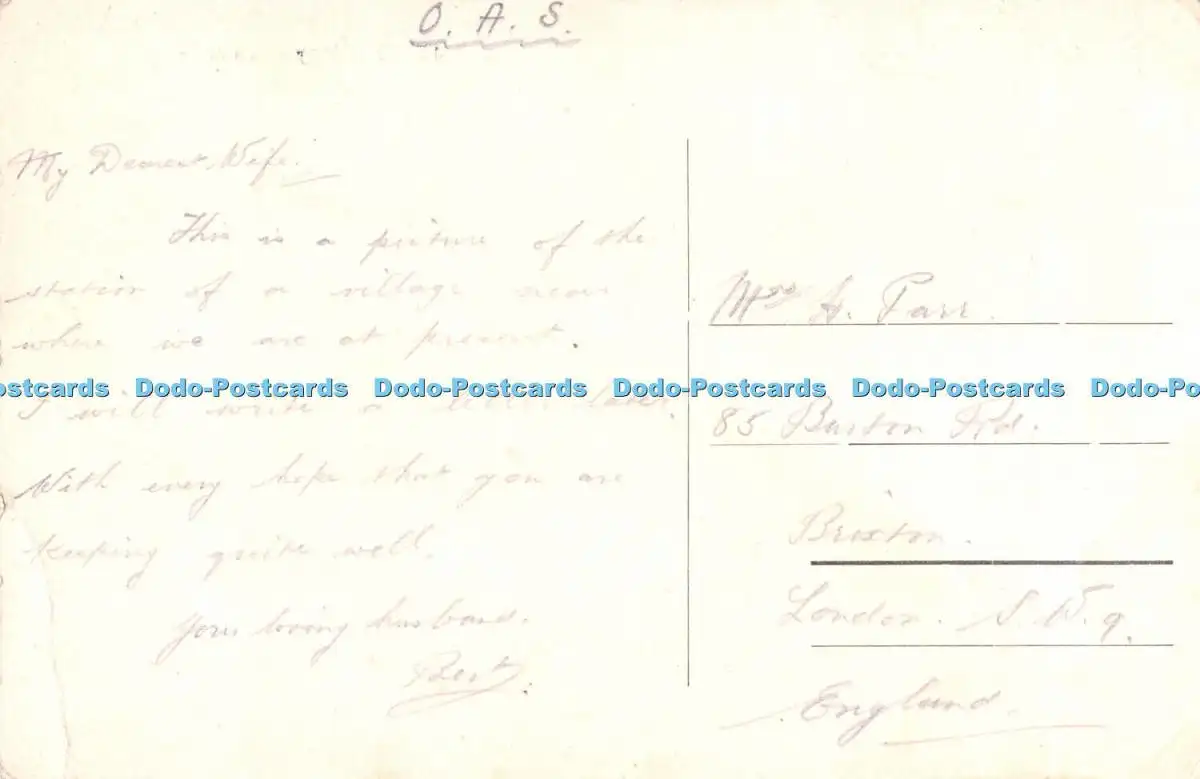 O. A. S.
My Dearest Wife.
This is a picture of the
station of a village near
where we are at present.
I will write a letter later.
With every hope that you are
keeping quite well.
Your loving husband.
Bert.
Mrs H. Parr.
85 Road.
Brixton.
London. S.W.9.
England.
ostcards Dodo-Postcards Dodo-Postcards Dodo-Postcards Dodo-Postcards Dodo-Po